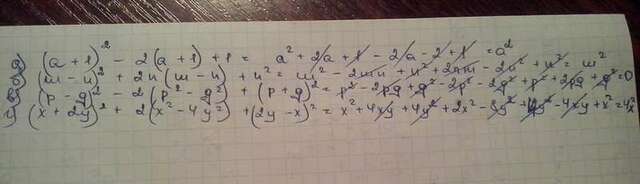 а) (a + 1)² - 2(a + 1) + 1 = a² + 2a + 1 - 2a - 2 + 1 = a²
б) (m - n)² + 2n(m - n) + n² = m² - 2mn + n² + 2nm - 2n² + n² = m²
(p - q)² - 2(p² - q²) + (p + q)² = p² - 2pq + q² - 2p² - 2q² + p² + 2pq + q² = 0
(x + 2y)² + 2(x² - 4y²) + (2y - x)² = x² + 4xy + 4y² + 2x² - 8y² + 4y² - 4xy + x² = 4x²